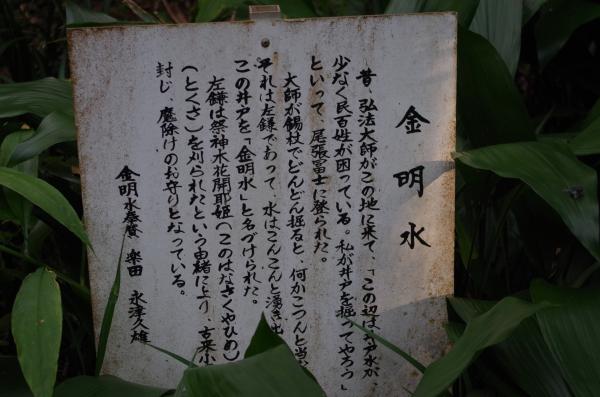 金明水
昔、弘法大師がこの地に来て、「この辺は井戸水が、
少なく民百姓が困っている。私が井戸を掘ってやろう」
といって、尾張富士に登られた。
大師が錫杖でどんどん掘ると、何かこつんと当
それは左鎌であって、水はこんこんと湧き出
この井戸を、「金明水」と名づけられた。
左鎌は祭神木花開耶姫(このはなさくやひめ)
(とくさ)を刈られたという由緒により、古来小
封じ、魔除けのお守りとなっている。
金明水奉賛 楽田 永津久雄